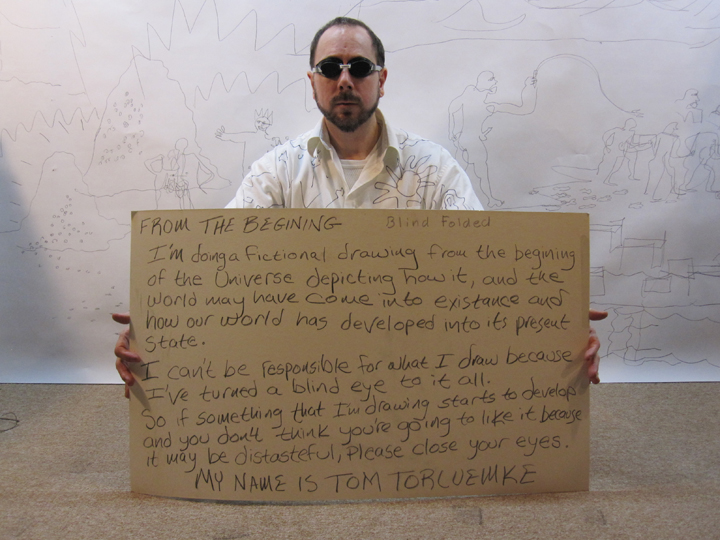 FROM THE BEGINING Blind Folded
I'm doing a fictional drawing from the begining
of the Universe depicting how it, and the
world may have come into existance and
how our world has developed into its present
state.
I can't be responsible for what I draw because
I've turned a blind eye to it all.
So if something that I'm drawing starts to develop
and you don't think you're going to like it because
it may be distasteful, Please close your eyes.
MY NAME IS TOM TORLUEMKE